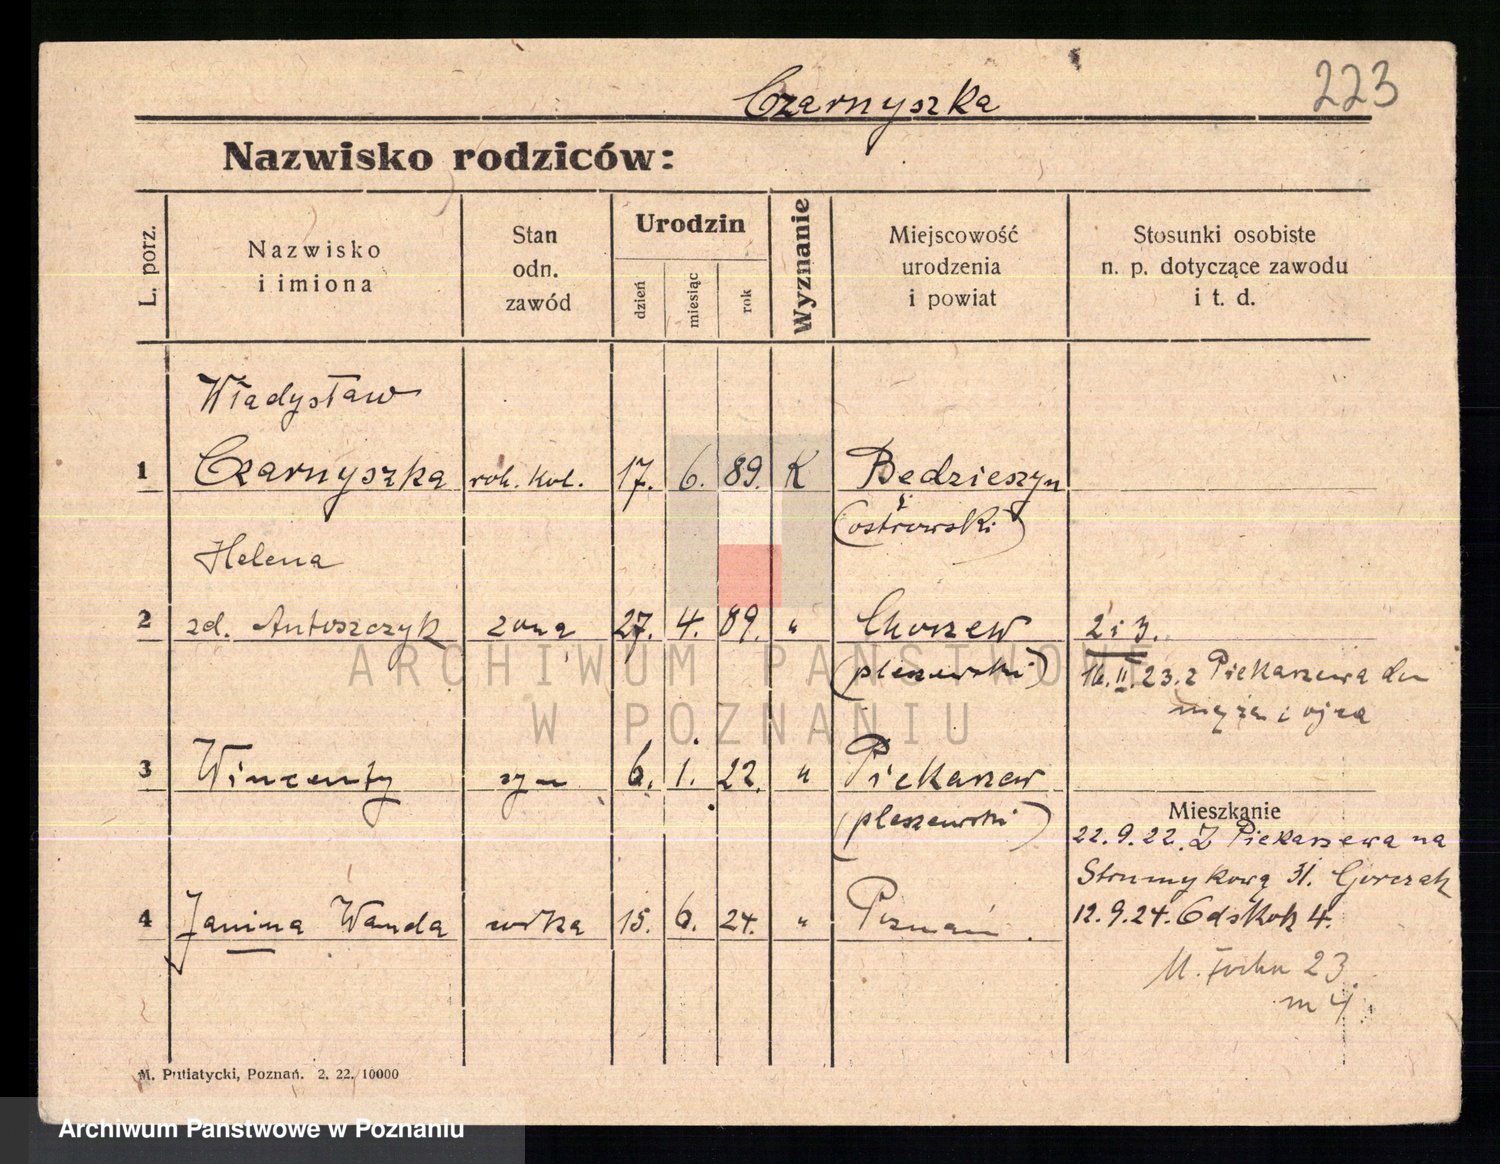 223
Czarnyszka
Nazwisko rodziców:
L. porz.
Nazwisko
i imiona
Stan
odn.
zawód
Urodzin
dzień
miesiąc
rok
Wyznanie
Miejscowość
urodzenia
i powiat
Stosunki osobiste
n. p. dotyczące zawodu
i t. d.
Władysław
1 Czarnyszka rob. kol. 17. 6. 89. K Będzieszyn
(ostrowski)
Helena
2 zd. Antoszczyk żona 27. 4. 89. " Chorzew 2 i 3.
(pleszewski) 16.II.23. z Piekarzewa do
męża i ojca
3 Wincenty syn 6. 1. 22. " Piekarzew
(pleszewski)
Mieszkanie
22.9.22. Z Piekarzewa na
Strumykową 31. Górczak
4 Janina Wanda córka 15. 6. 24. " Poznań.
12.9.24. 4.
M. Focha 23
m 4
M. Putiatycki, Poznań. 2. 22. 10000
ARCHIWUM PAŃSTWOWE
W POZNANIU
Archiwum Państwowe w Poznaniu